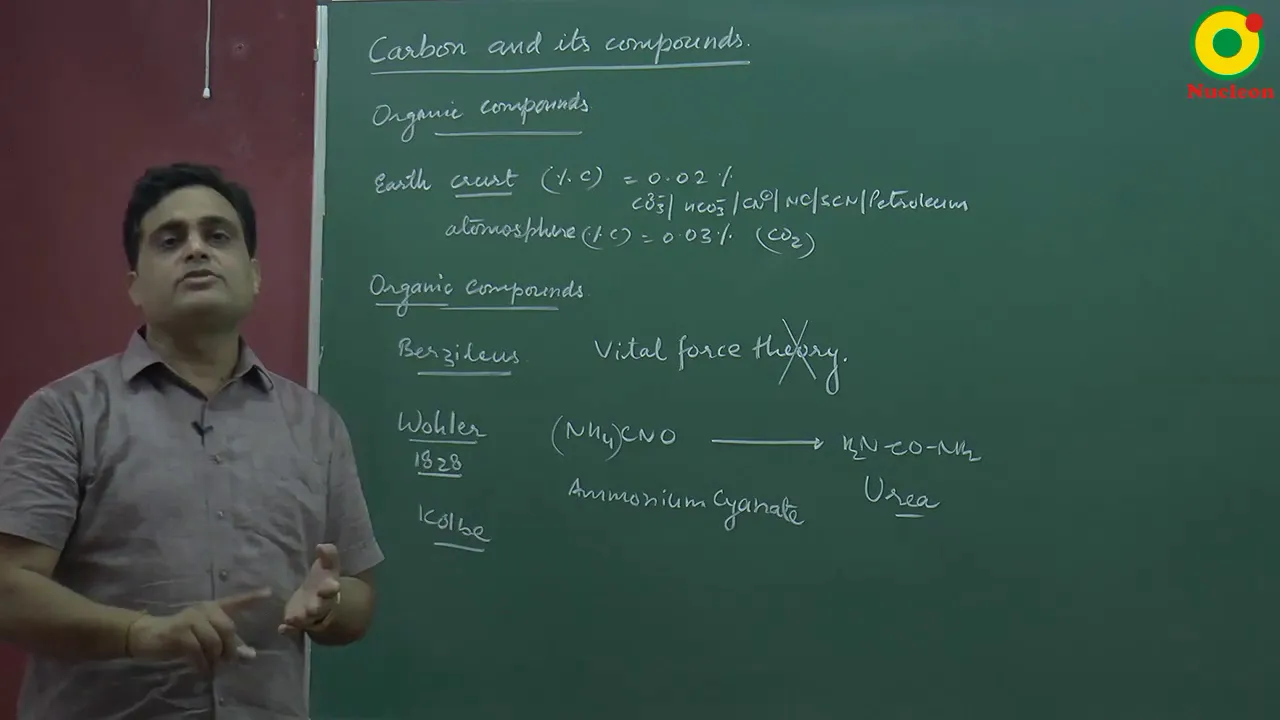 Carbon and its compounds.
Organic compounds
Earth crust (% C) = 0.02 %
CO₃²⁻ | HCO₃⁻ | CN⁻ | NC | SCN | Petroleum
atomosphere (% C) = 0.03 % (CO₂)
Organic compounds
Berzileus Vital force theory.
Wohler (NH₄)CNO ⟶ H₂N-CO-NH₂
1828
Ammonium Cyanate Urea
Kolbe
Nucleon